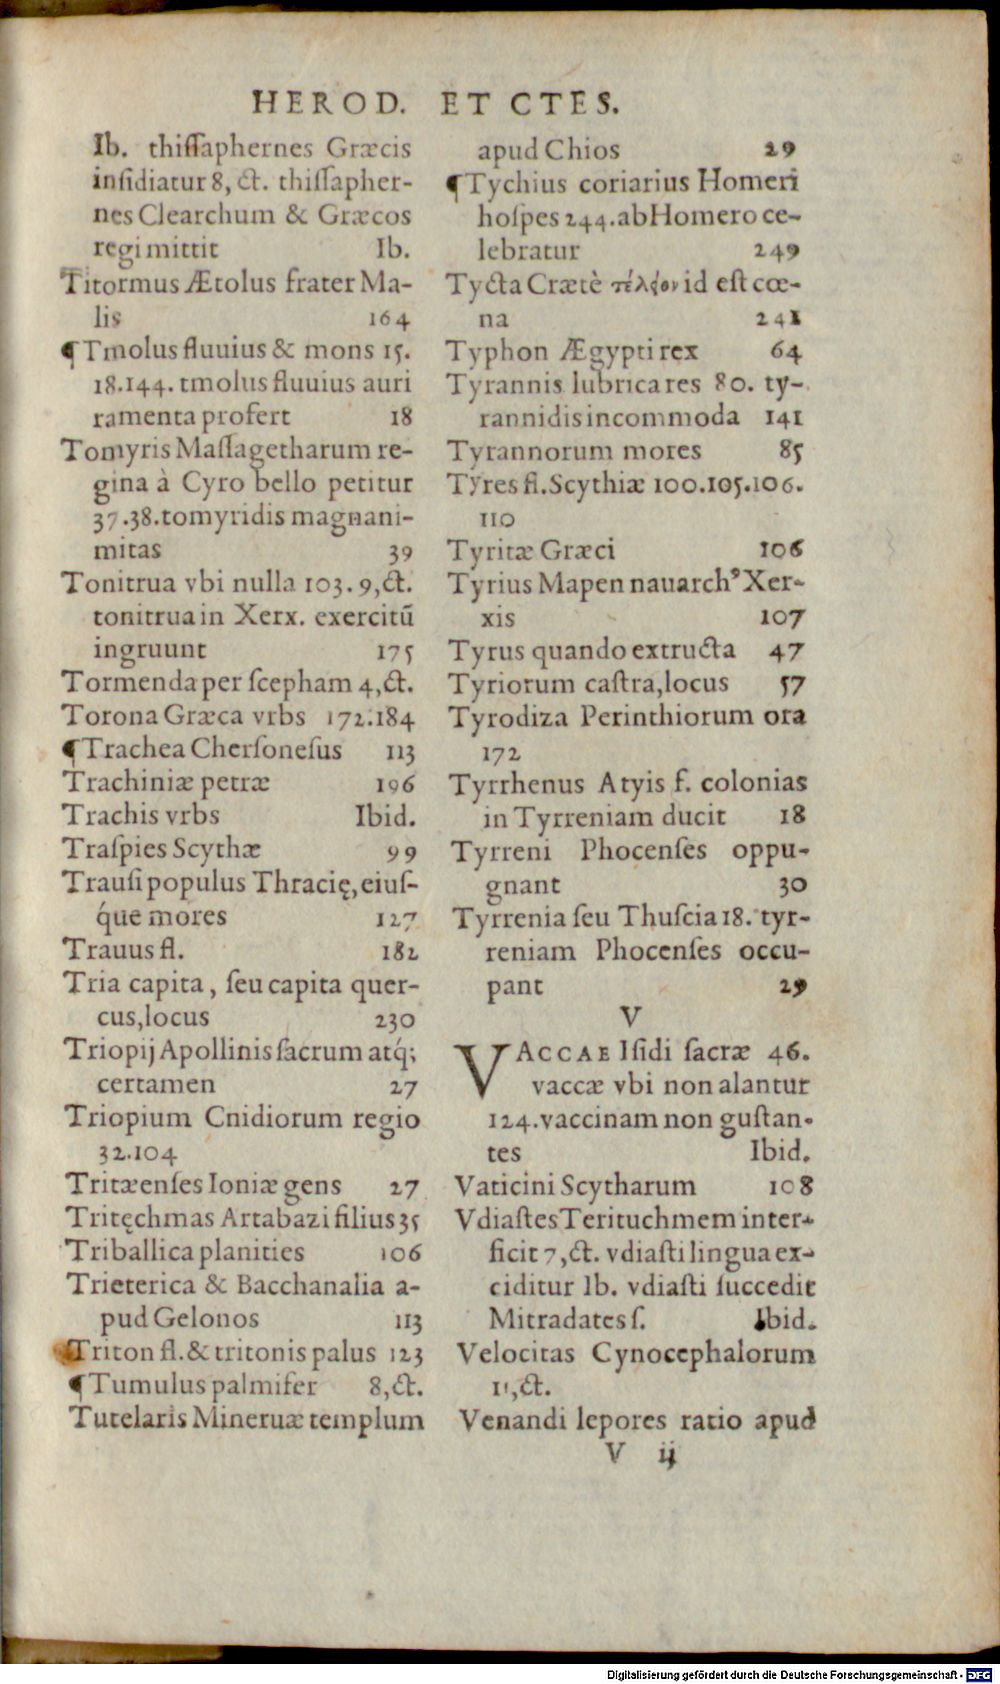 HEROD. ET CTES.
Ib. thiſſaphernes Græcis
inſidiatur 8, ct. thiſſapher-
nes Clearchum & Græcos
regi mittit Ib.
Titormus Ætolus frater Ma-
lis 164
¶Tmolus fluuius & mons 15.
18.144. tmolus fluuius auri
ramenta profert 18
Tomyris Maſſagetharum re-
gina à Cyro bello petitur
37.38.tomyridis magnani-
mitas 39
Tonitrua vbi nulla 103. 9,ct.
tonitrua in Xerx. exercitū
ingruunt 175
Tormenda per ſcepham 4,ct.
Torona Græca vrbs 172.184
¶Trachea Cherſoneſus 113
Trachiniæ petræ 196
Trachis vrbs Ibid.
Traſpies Scythæ 99
Trauſi populus Thracię, eiuſ-
q́ue mores 127
Trauus fl. 182
Tria capita, ſeu capita quer-
cus,locus 230
Triopij Apollinis ſacrum atq́;
certamen 27
Triopium Cnidiorum regio
32.104
Tritæenſes Ioniæ gens 27
Tritęchmas Artabazi filius 35
Triballica planities 106
Trieterica & Bacchanalia a-
pud Gelonos 113
Triton fl.& tritonis palus 123
¶Tumulus palmifer 8,ct.
Tutelaris Mineruæ templum
apud Chios 29
¶Tychius coriarius Homeri
hoſpes 244.ab Homero ce-
lebratur 249
Tycta Crætè id eſt cœ-
na 241
Typhon Ægypti rex 64
Tyrannis lubrica res 80. ty-
rannidis incommoda 141
Tyrannorum mores 85
Tyres fl.Scythiæ 100.105.106.
110
Tyritæ Græci 106
Tyrius Mapen nauarchꝰ Xer-
xis 107
Tyrus quando extructa 47
Tyriorum caſtra,locus 57
Tyrodiza Perinthiorum ora
172
Tyrrhenus Atyis f. colonias
in Tyrreniam ducit 18
Tyrreni Phocenſes oppu-
gnant 30
Tyrrenia ſeu Thuſcia 18. tyr-
reniam Phocenſes occu-
pant 29
V
VACCAE Iſidi ſacræ 46.
vaccæ vbi non alantur
124.vaccinam non guſtan-
tes Ibid.
Vaticini Scytharum 108
Vdiaſtes Terituchmem inter-
ficit 7,ct. vdiaſti lingua ex-
ciditur Ib. vdiaſti ſuccedit
Mitradates ſ. Ibid.
Velocitas Cynocephalorum
11,ct.
Venandi lepores ratio apud
V ij
Digitalisierung gefördert durch die Deutsche Forschungsgemeinschaft - DFG